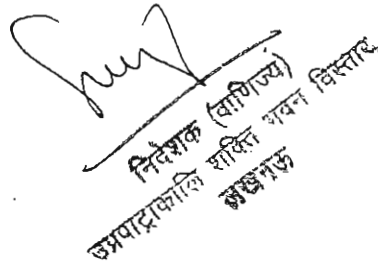 निदेशक (वाणिज्य)
उ०प्र०पा०ट्रा०का०लि० शक्ति भवन विस्तार
लखनऊ